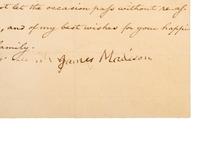 not let the occasion pass without re-as
, and of my best wishes for your happi
family.
James Madison